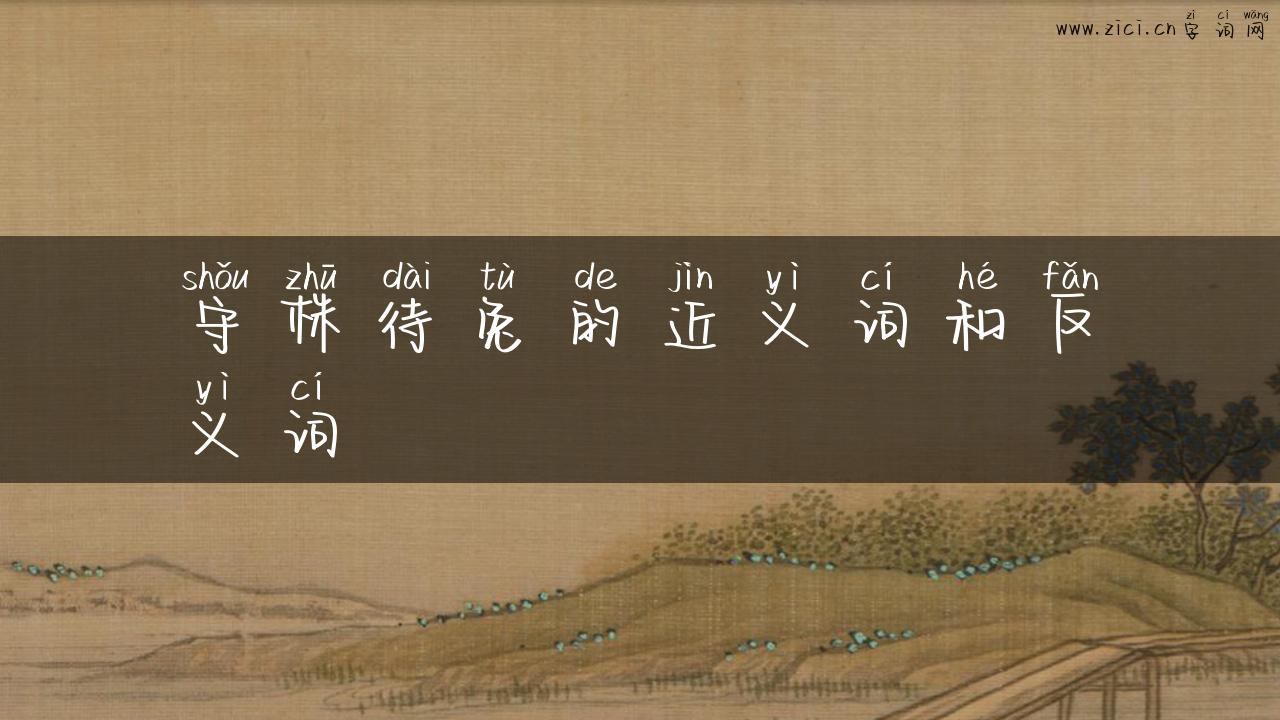 zì cí wǎng
www.zici.cn字词网
shǒu zhū dài tù de jìn yì cí hé fǎn
守株待兔的近义词和反
yì cí
义词